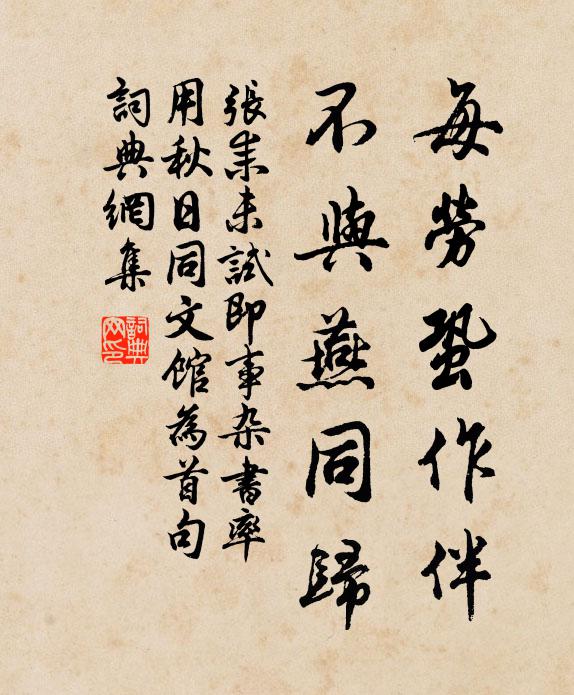 每勞蛩作伴
不與燕同歸
張耒未試即事杂書率
用秋日同文館為首句
詞典網集
詞典網印